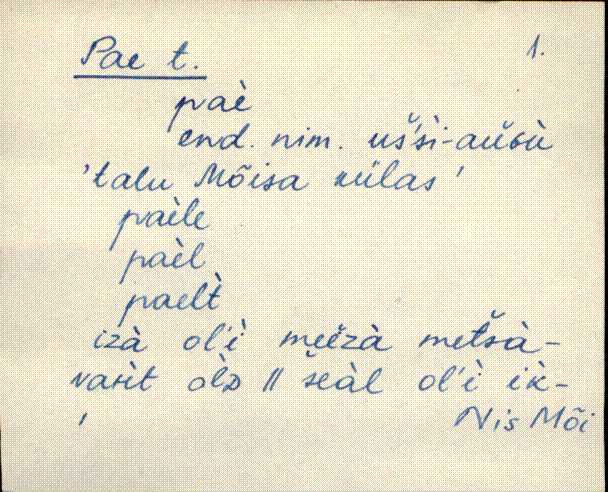 Pae t. 1.
paè
end. nim. uš́śi-aŭsù
'talu Mõisa külas'
paèle
paèl
paelt̀
izà ol'ì meèzà metšà-
varìt òlD || šeàl ol'ì ìk-
Nis Mõi